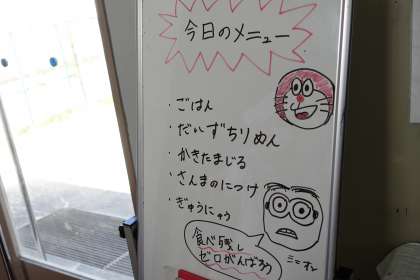 今日のメニュー
・ごはん
・だいずちりめん
・かきたまじる
・さんまのにつけ
・ぎゅうにゅう
食べ残し
ゼロがんばろう
ミニオン